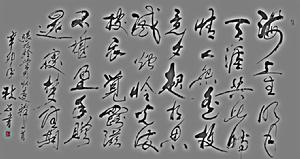 海上生明月
天涯共此時
情人怨遙夜
竟夕起相思
滅燭憐光滿
披衣覺露滋
不堪盈手贈
還寢夢佳期